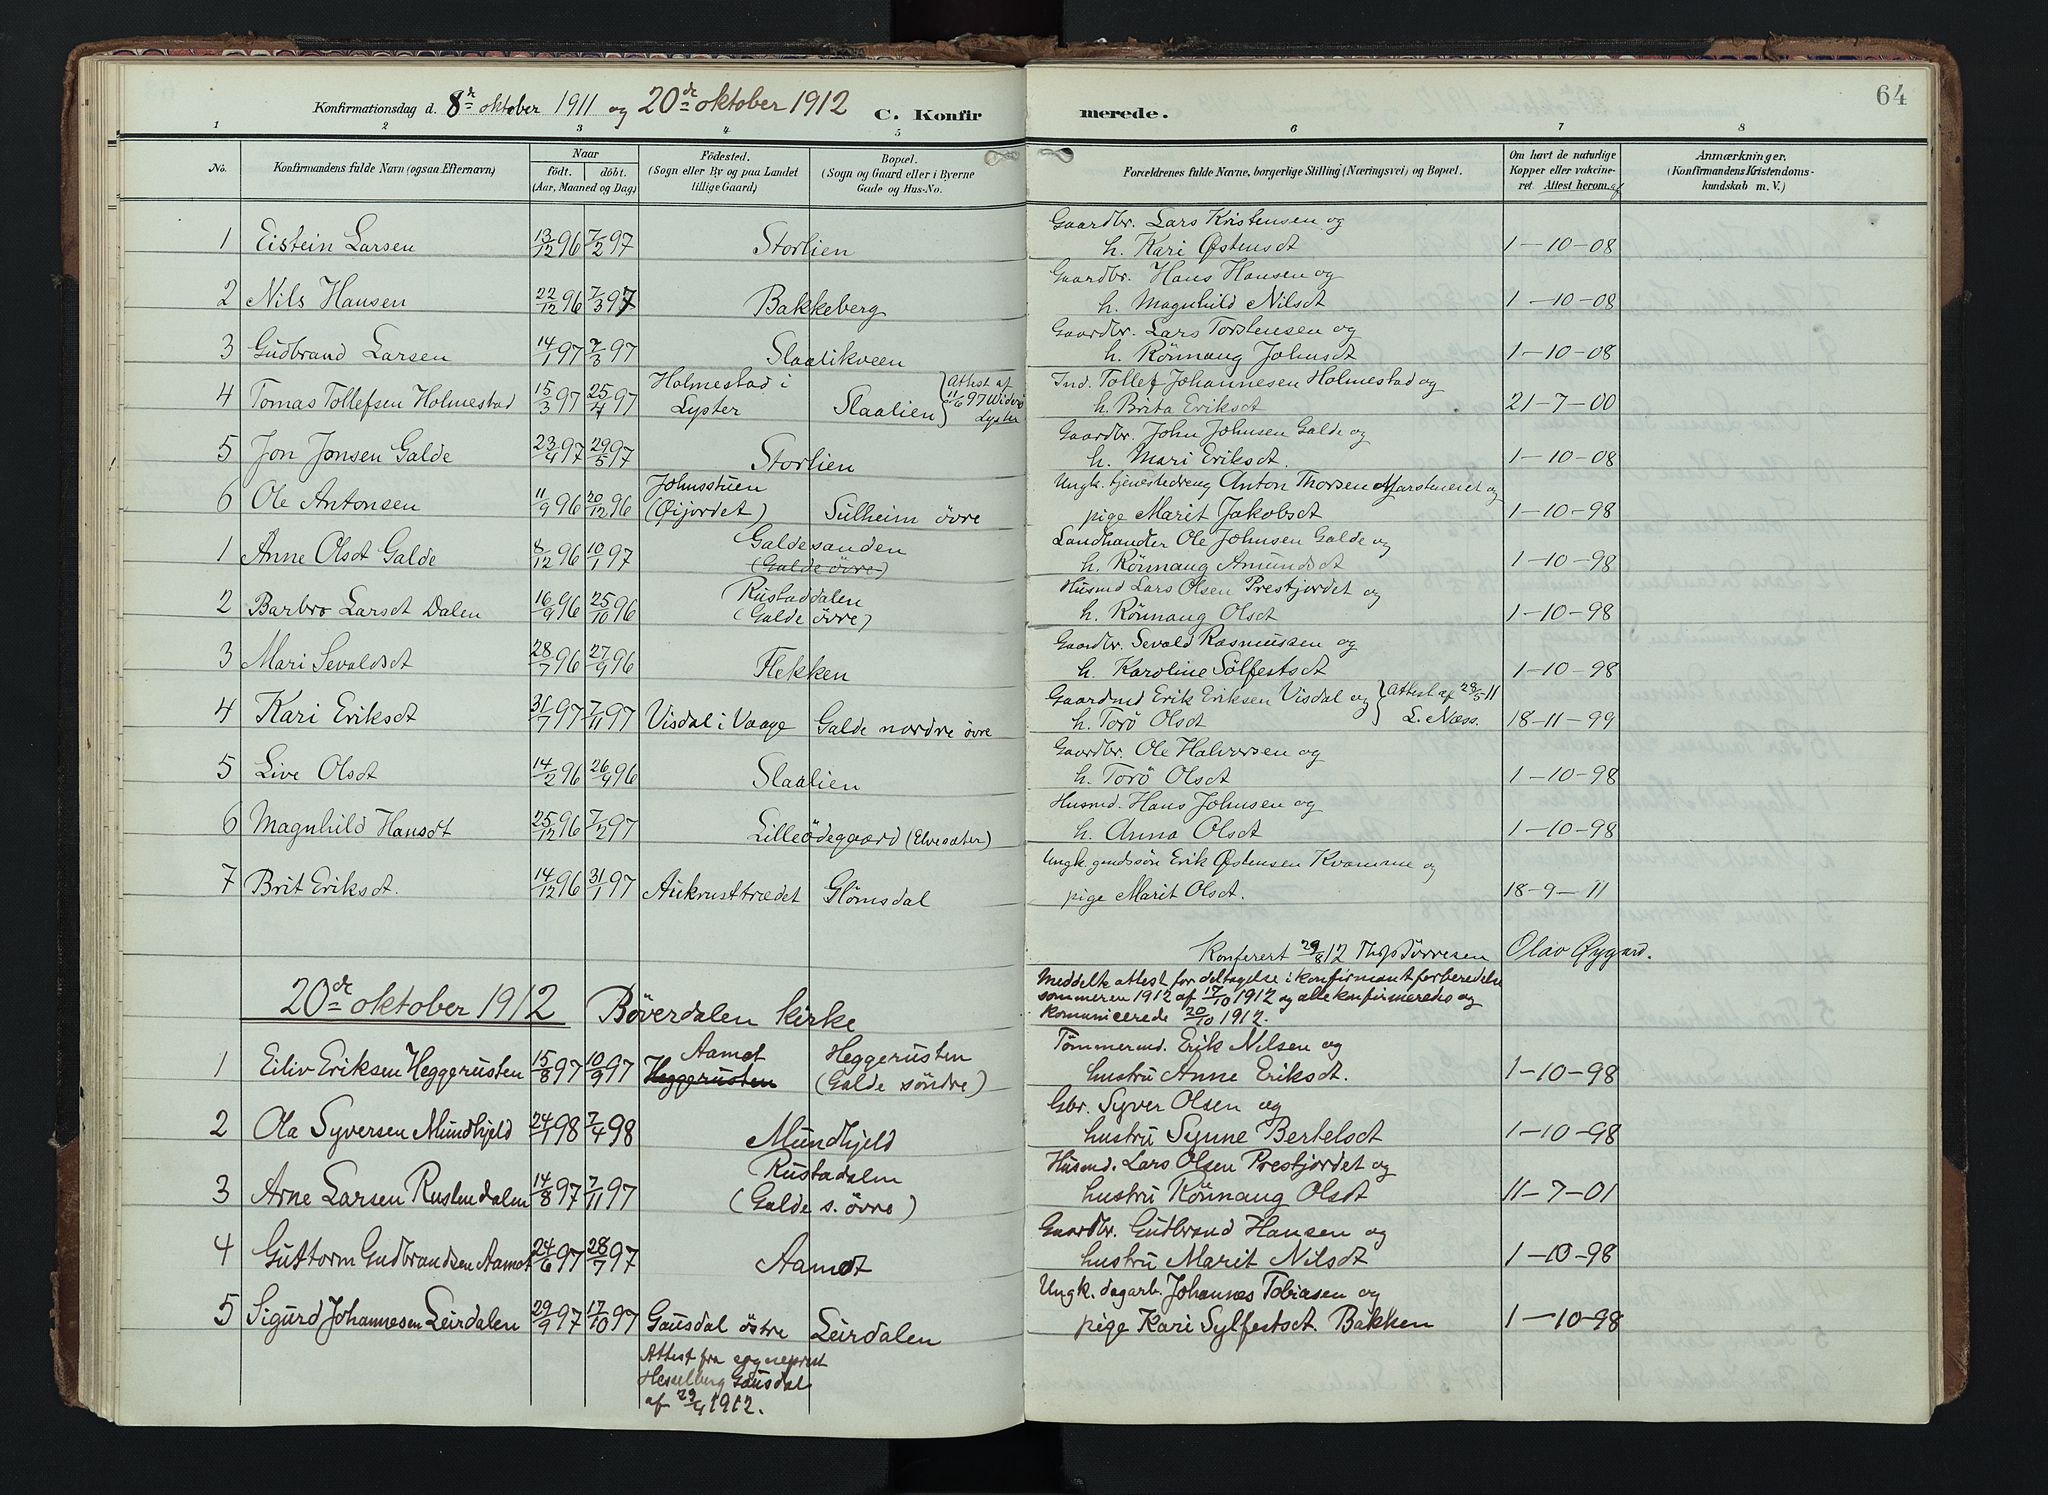 64
Konfirmationsdag d. 8de oktober 1911 og 20de oktober 1912 C. Konfirmerede.
1 2 3 4 5 6 7 8
No. Konfirmandens fulde Navn (ogsaa Efternavn) Naar født. døbt. (Aar, Maaned og Dag) Fødested. (Sogn eller By og paa Landet tillige Gaard) Bopæl. (Sogn og Gaard eller i Byerne Gade og Hus-No. Forældrenes fulde Navne, borgerlige Stilling (Næringsvei) og Bopæl. Om havt de naturlige Kopper eller vakcineret. Attest herom af Anmærkninger. (Konfirmandens Kristendomskundskab m. V.)
1 Eistein Larsen 13/12 96 7/2 97 Storlien Gaardbr. Lars Kristensen og h. Kari Østensdt 1-10-08
2 Nils Hansen 22/12 96 7/3 97 Bakkeberg Gaardbr. Hans Hansen og h. Magnhild Nilsdt 1-10-08
3 Gudbrand Larsen 14/1 97 7/3 97 Slaalikveen Gaardbr. Lars Torstensen og h. Rönnaug Johnsdt 1-10-08
4 Tomas Tollefsen Holmestad 15/3 97 25/4 97 Holmestad i Lyster Slaalien Attest af 11/6 97 Lyster Ind. Tollef Johannesen Holmestad og h. Brita Eriksdt 21-7-00
5 Jon Jonsen Galde 23/4 97 29/5 97 Storlien Gaardbr. John Johnsen Galde og h. Mari Eriksdt. 1-10-08
6 Ole Antonsen 11/9 96 20/12 96 Johnsstuen (Øijordet) Sulheim övre Ungk. tjenestedreng Anton Thorsen og pige Marit Jakobsdt 1-10-98
1 Anne Olsdt Galde 8/12 96 10/1 97 Galdesanden (Galde övre) Landhandler Ole Johnsen Galde og h. Rönnaug Amundsdt 1-10-98
2 Barbro Larsdt Dalen 16/9 96 25/10 96 Rustaddalen (Galde övre) Husmd Lars Olsen Prestjordet og h. Rönnaug Olsdt 1-10-98
3 Mari Sevaldsdt 28/7 96 27/9 96 Flekken Gaardbr. Sevald Rasmussen og h. Karoline Sölfestsdt 1-10-98
4 Kari Eriksdt 31/7 97 7/11 97 Visdal i Vaage Galde nordre övre Gaardmd Erik Eriksen Visdal og h. Torö Olsdt Attest af 28/5 11 L. Næss. 18-11-99
5 Live Olsdt 14/2 96 26/4 96 Slaalien Gaardbr. Ole Halvorsen og h. Torö Olsdt 1-10-98
6 Magnhild Hansdt 25/12 96 7/2 97 Lilleödegaard (Elvesæter) Husmd. Hans Johnsen og h. Anna Olsdt 1-10-98
7 Brit Eriksdt. 14/12 96 31/1 97 Aukrusttrædet Glömsdal Ungk. gaardssön Erik Østensen Kvamme og pige Marit Olsdt. 18-9-11
Konferert 29/8 12 Thjs Törresen Olav Øygard.
20de oktober 1912 Böverdalen kirke Meddelte attest for deltagelse i konfirmantforberedelse
sommeren 1912 af 17/10 1912 og alle konfirmeredes og
komunicerede 20/10 1912.
1 Eiliv Eriksen Heggerusten 15/8 97 10/9 97 Aamot Heggerusten Heggerusten (Galde söndre) Tömmermd. Erik Nilsen og hustru Anne Eriksdt. 1-10-98
2 Ola Syversen Mundhjeld 24/1 98 7/4 98 Mundhjeld Gbr. Syver Olsen og hustru Synne Bertelsdt 1-10-98
3 Arne Larsen Rustendalen 14/8 97 7/11 97 Rustadalen (Galde s. övre) Husmd. Lars Olsen Prestjordet og hustru Rönnaug Olsdt 11-7-01
4 Guttorm Gudbrandsen Aamot 24/6 97 28/7 97 Aamot Gaardbr. Gudbrand Hansen og hustru Marit Nilsdt 1-10-98
5 Sigurd Johannesen Leirdalen 29/9 97 17/10 97 Gausdal östre Leirdalen Ungk. dagarb. Johannes Tobiasen og pige Kari Sylfestsdt. Bakken 1-10-98
Attest fra sogneprest
Hesselberg Gausdal
af 29/4 1912.